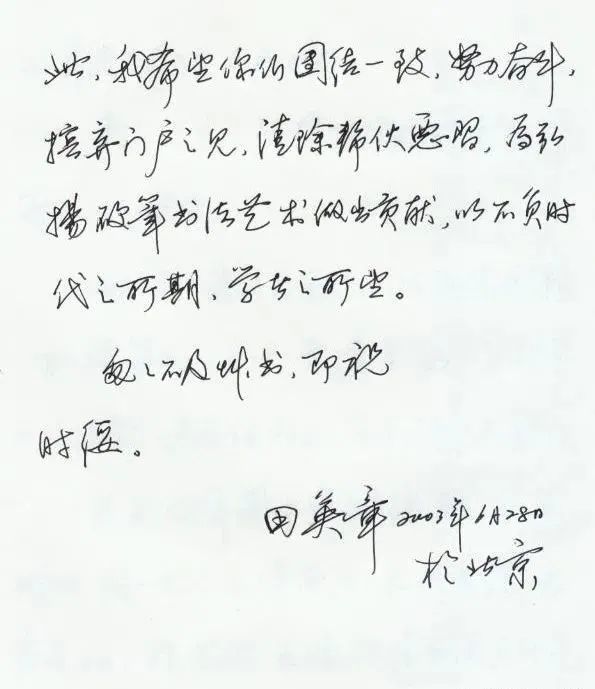 此，我希望你们團结一致，努力奋斗，
摈弃门户之见，清除帮伙恶習，为弘
揚硬筆书法艺术做出贡献，以不负时
代之所期，学者之所望。
匆匆不及艸书，即祝
时绥。
田英章 2003年6月28日
於北京